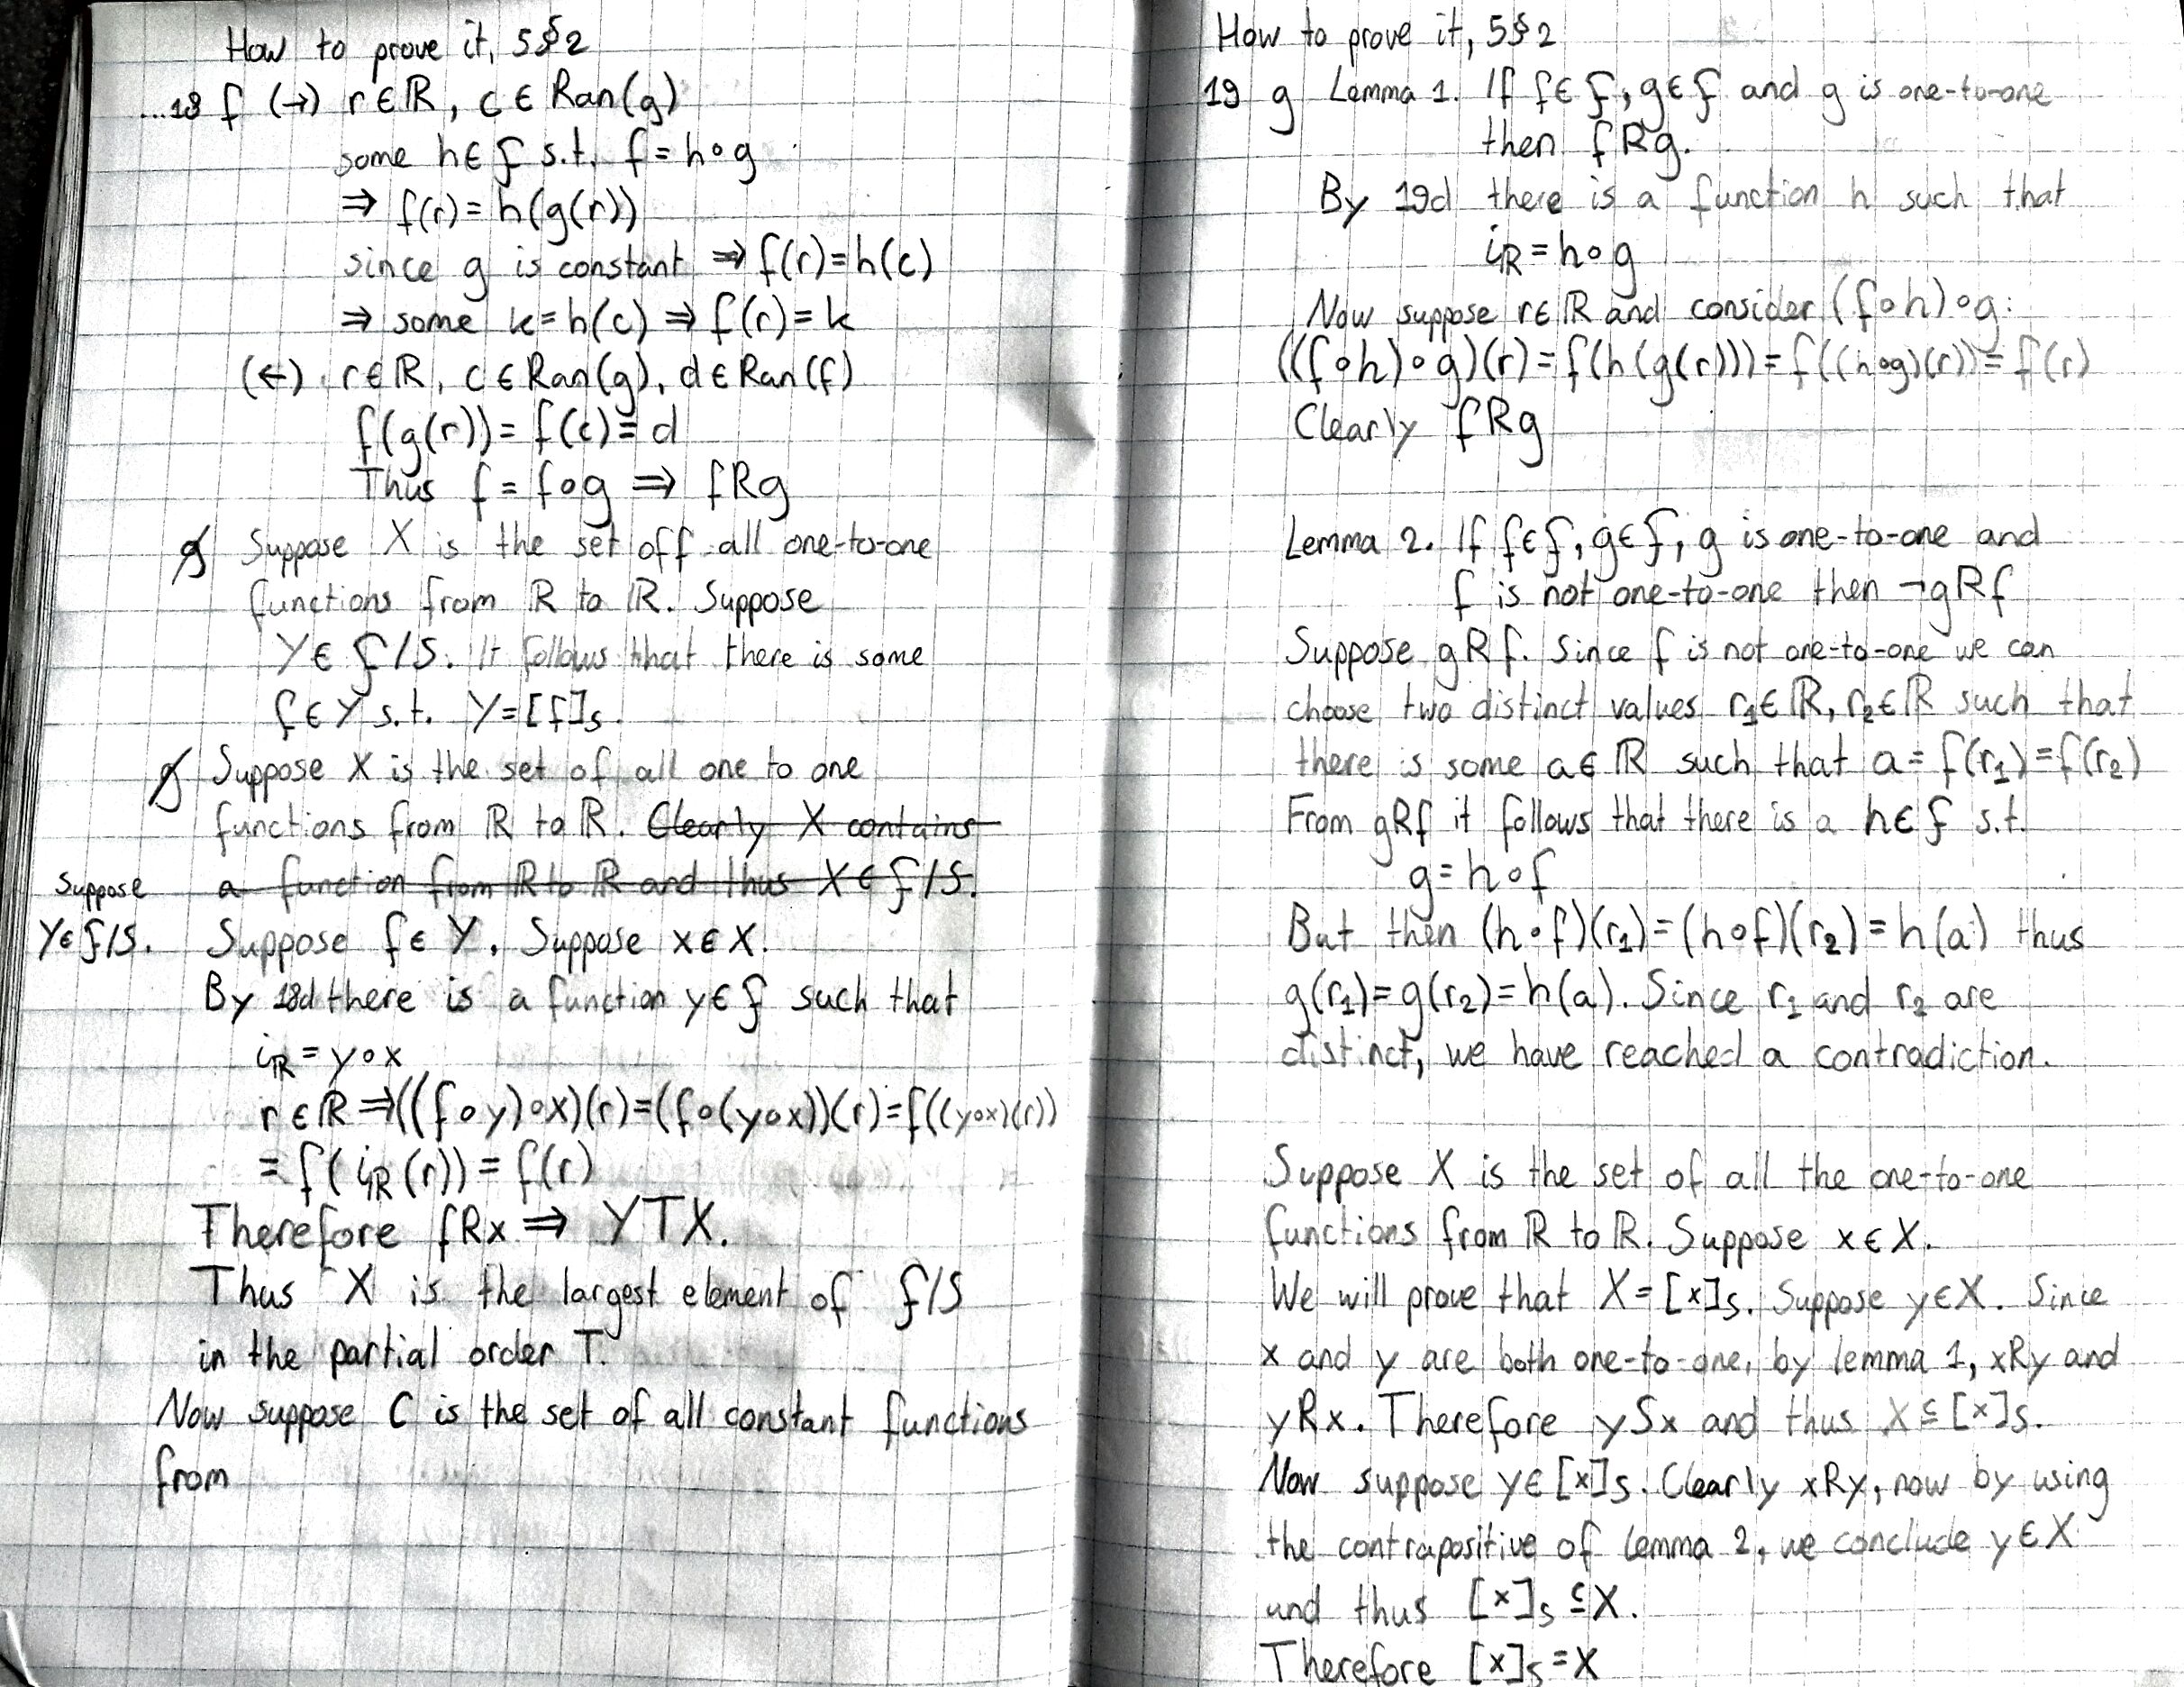 How to prove it, 5§2
...18 f (→) r∈ℝ, c∈Ran(g)
some h∈ℱ s.t. f=h∘g
⇒ f(r)=h(g(r))
since g is constant ⇒ f(r)=h(c)
⇒ some k=h(c) ⇒ f(r)=k
(←) r∈ℝ, c∈Ran(g), d∈Ran(f)
f(g(r))=f(c)=d
Thus f=f∘g ⇒ fRg
g Suppose X is the set off all one-to-one
functions from ℝ to ℝ. Suppose
Y∈ℱ/S. It follows that there is some
f∈Y s.t. Y=[f]ₛ.
g Suppose X is the set of all one to one
functions from ℝ to ℝ. Clearly X contains
a function from ℝ to ℝ and thus X∈ℱ/S.
Suppose
Y∈ℱ/S. Suppose f∈Y. Suppose x∈X.
By 18d there is a function y∈ℱ such that
iℝ=y∘x
r∈ℝ⇒((f∘y)∘x)(r)=(f∘(y∘x))(r)=f((y∘x)(r))
=f(iℝ(r))=f(r)
Therefore fRx ⇒ YTX.
Thus X is the largest element of ℱ/S
in the partial order T.
Now suppose C is the set of all constant functions
from
How to prove it, 5§2
19 g Lemma 1. If f∈ℱ, g∈ℱ and g is one-to-one
then fRg.
By 19d there is a function h such that
iℝ=h∘g
Now suppose r∈ℝ and consider (f∘h)∘g:
((f∘h)∘g)(r)=f(h(g(r)))=f((h∘g)(r))=f(r)
Clearly fRg
Lemma 2. If f∈ℱ, g∈ℱ, g is one-to-one and
f is not one-to-one then ¬gRf
Suppose gRf. Since f is not one-to-one we can
choose two distinct values r₁∈ℝ, r₂∈ℝ such that
there is some a∈ℝ such that a=f(r₁)=f(r₂)
From gRf it follows that there is a h∈ℱ s.t.
g=h∘f
But then (h∘f)(r₁)=(h∘f)(r₂)=h(a) thus
g(r₁)=g(r₂)=h(a). Since r₁ and r₂ are
distinct, we have reached a contradiction.
Suppose X is the set of all the one-to-one
functions from ℝ to ℝ. Suppose x∈X.
We will prove that X=[x]ₛ. Suppose y∈X. Since
x and y are both one-to-one, by lemma 1, xRy and
yRx. Therefore ySx and thus X⊆[x]ₛ.
Now suppose y∈[x]ₛ. Clearly xRy, now by using
the contrapositive of lemma 2, we conclude y∈X
and thus [x]ₛ⊆X.
Therefore [x]ₛ=X